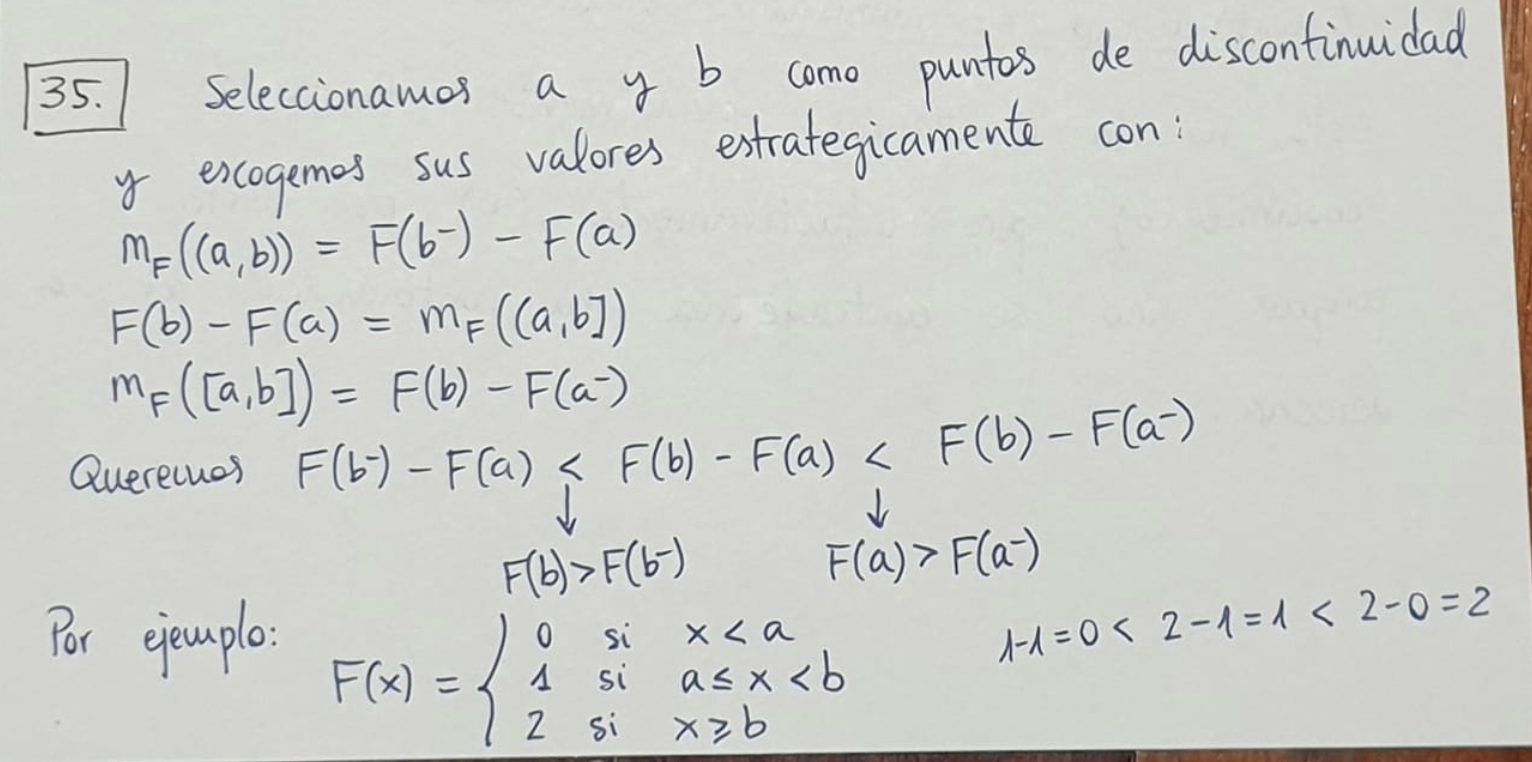 35. Seleccionamos a y b como puntos de discontinuidad
y escogemos sus valores estrategicamente con:
m_F((a,b)) = F(b⁻) - F(a)
F(b) - F(a) = m_F((a,b])
m_F([a,b]) = F(b) - F(a⁻)
Queremos F(b⁻) - F(a) < F(b) - F(a) < F(b) - F(a⁻)
↓ ↓
F(b) > F(b⁻) F(a) > F(a⁻)
Por ejemplo:
F(x) = { 0 si x < a
1 si a ≤ x < b
2 si x ≥ b
1-1=0 < 2-1=1 < 2-0=2